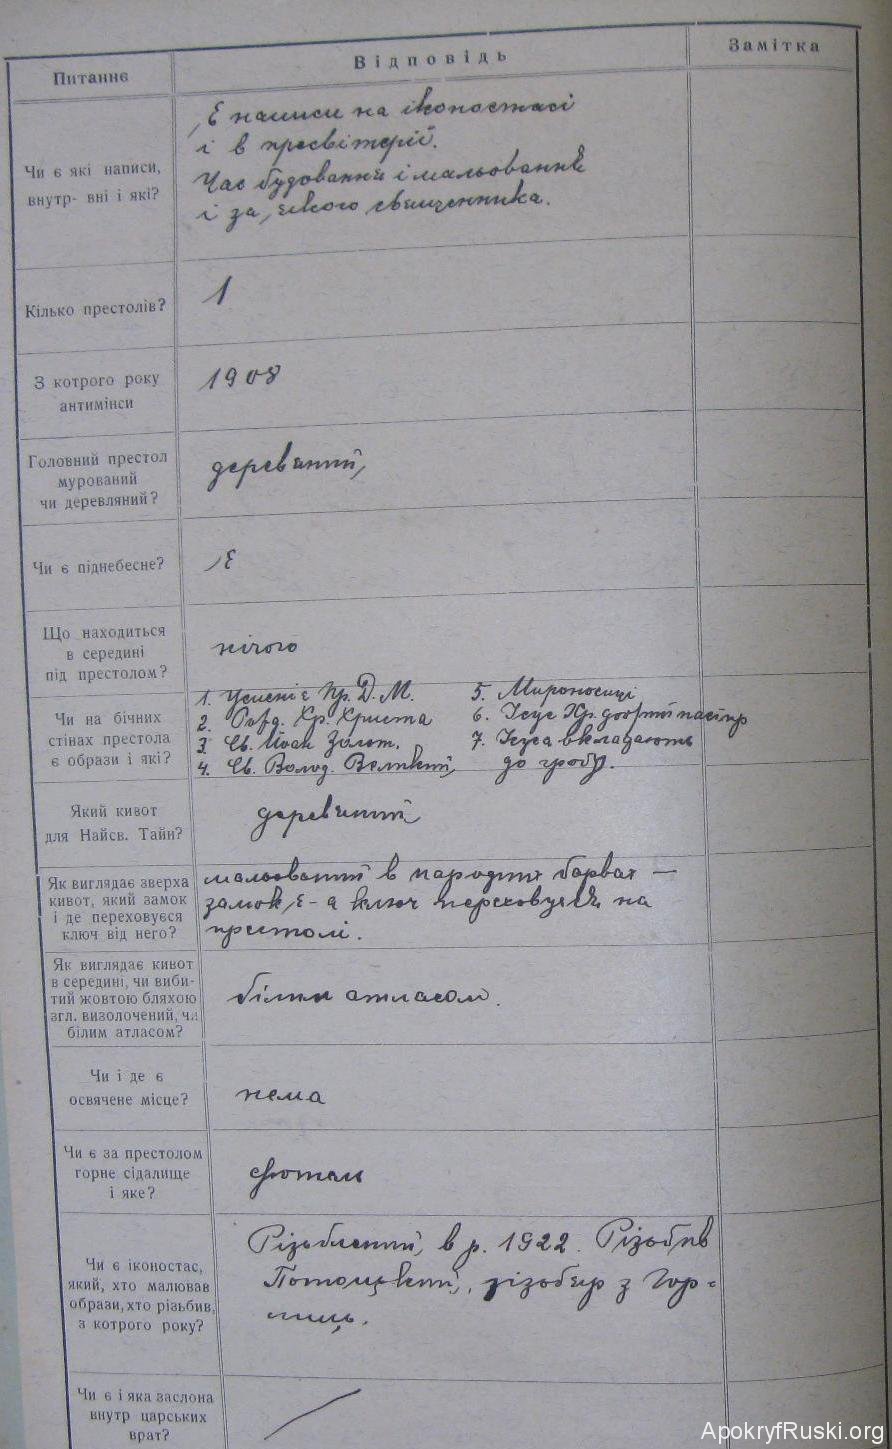 Питаннє
Відповідь
Замітка
Чи є які написи,
внутр- вні і які?
Є написи на іконостасі
і в пресвітерії.
Час будовання і мальовання
і за якого священника.
Кілько престолів?
1
З котрого року
антимінси
1908
Головний престол
мурований
чи деревляний?
деревяний
Чи є піднебесне?
Є
Що находиться
в середині
під престолом?
нічого
Чи на бічних
стінах престола
є образи і які?
1. Успеніє Пр. Д. М.
2. Хр. Христа
3. Св. Йоан Золот.
4. Св. Волод. Великий
5. Мироносиці
6. Ісус Хр. добрий пастир
7. Ісуса вкладають
до гробу.
Який кивот
для Найсв. Тайн?
деревяний
Як виглядає зверха
кивот, який замок
і де переховуєся
ключ від него?
мальований в народних барвах —
замок є - а ключ переховуєся на
престолі.
Як виглядає кивот
в середині, чи виби-
тий жовтою бляхою
згл. визолочений, чи
білим атласом?
білим атласом.
Чи і де є
освячене місце?
нема
Чи є за престолом
горне сідалище
і яке?
фотель
Чи є іконостас,
який, хто малював
образи, хто різьбив,
з котрого року?
Різьблений в р. 1922. Різьбив
Потоцький, різьбяр з Гор-
лиць.
Чи є і яка заслона
внутр царських
врат?
ApokryfRuski.org